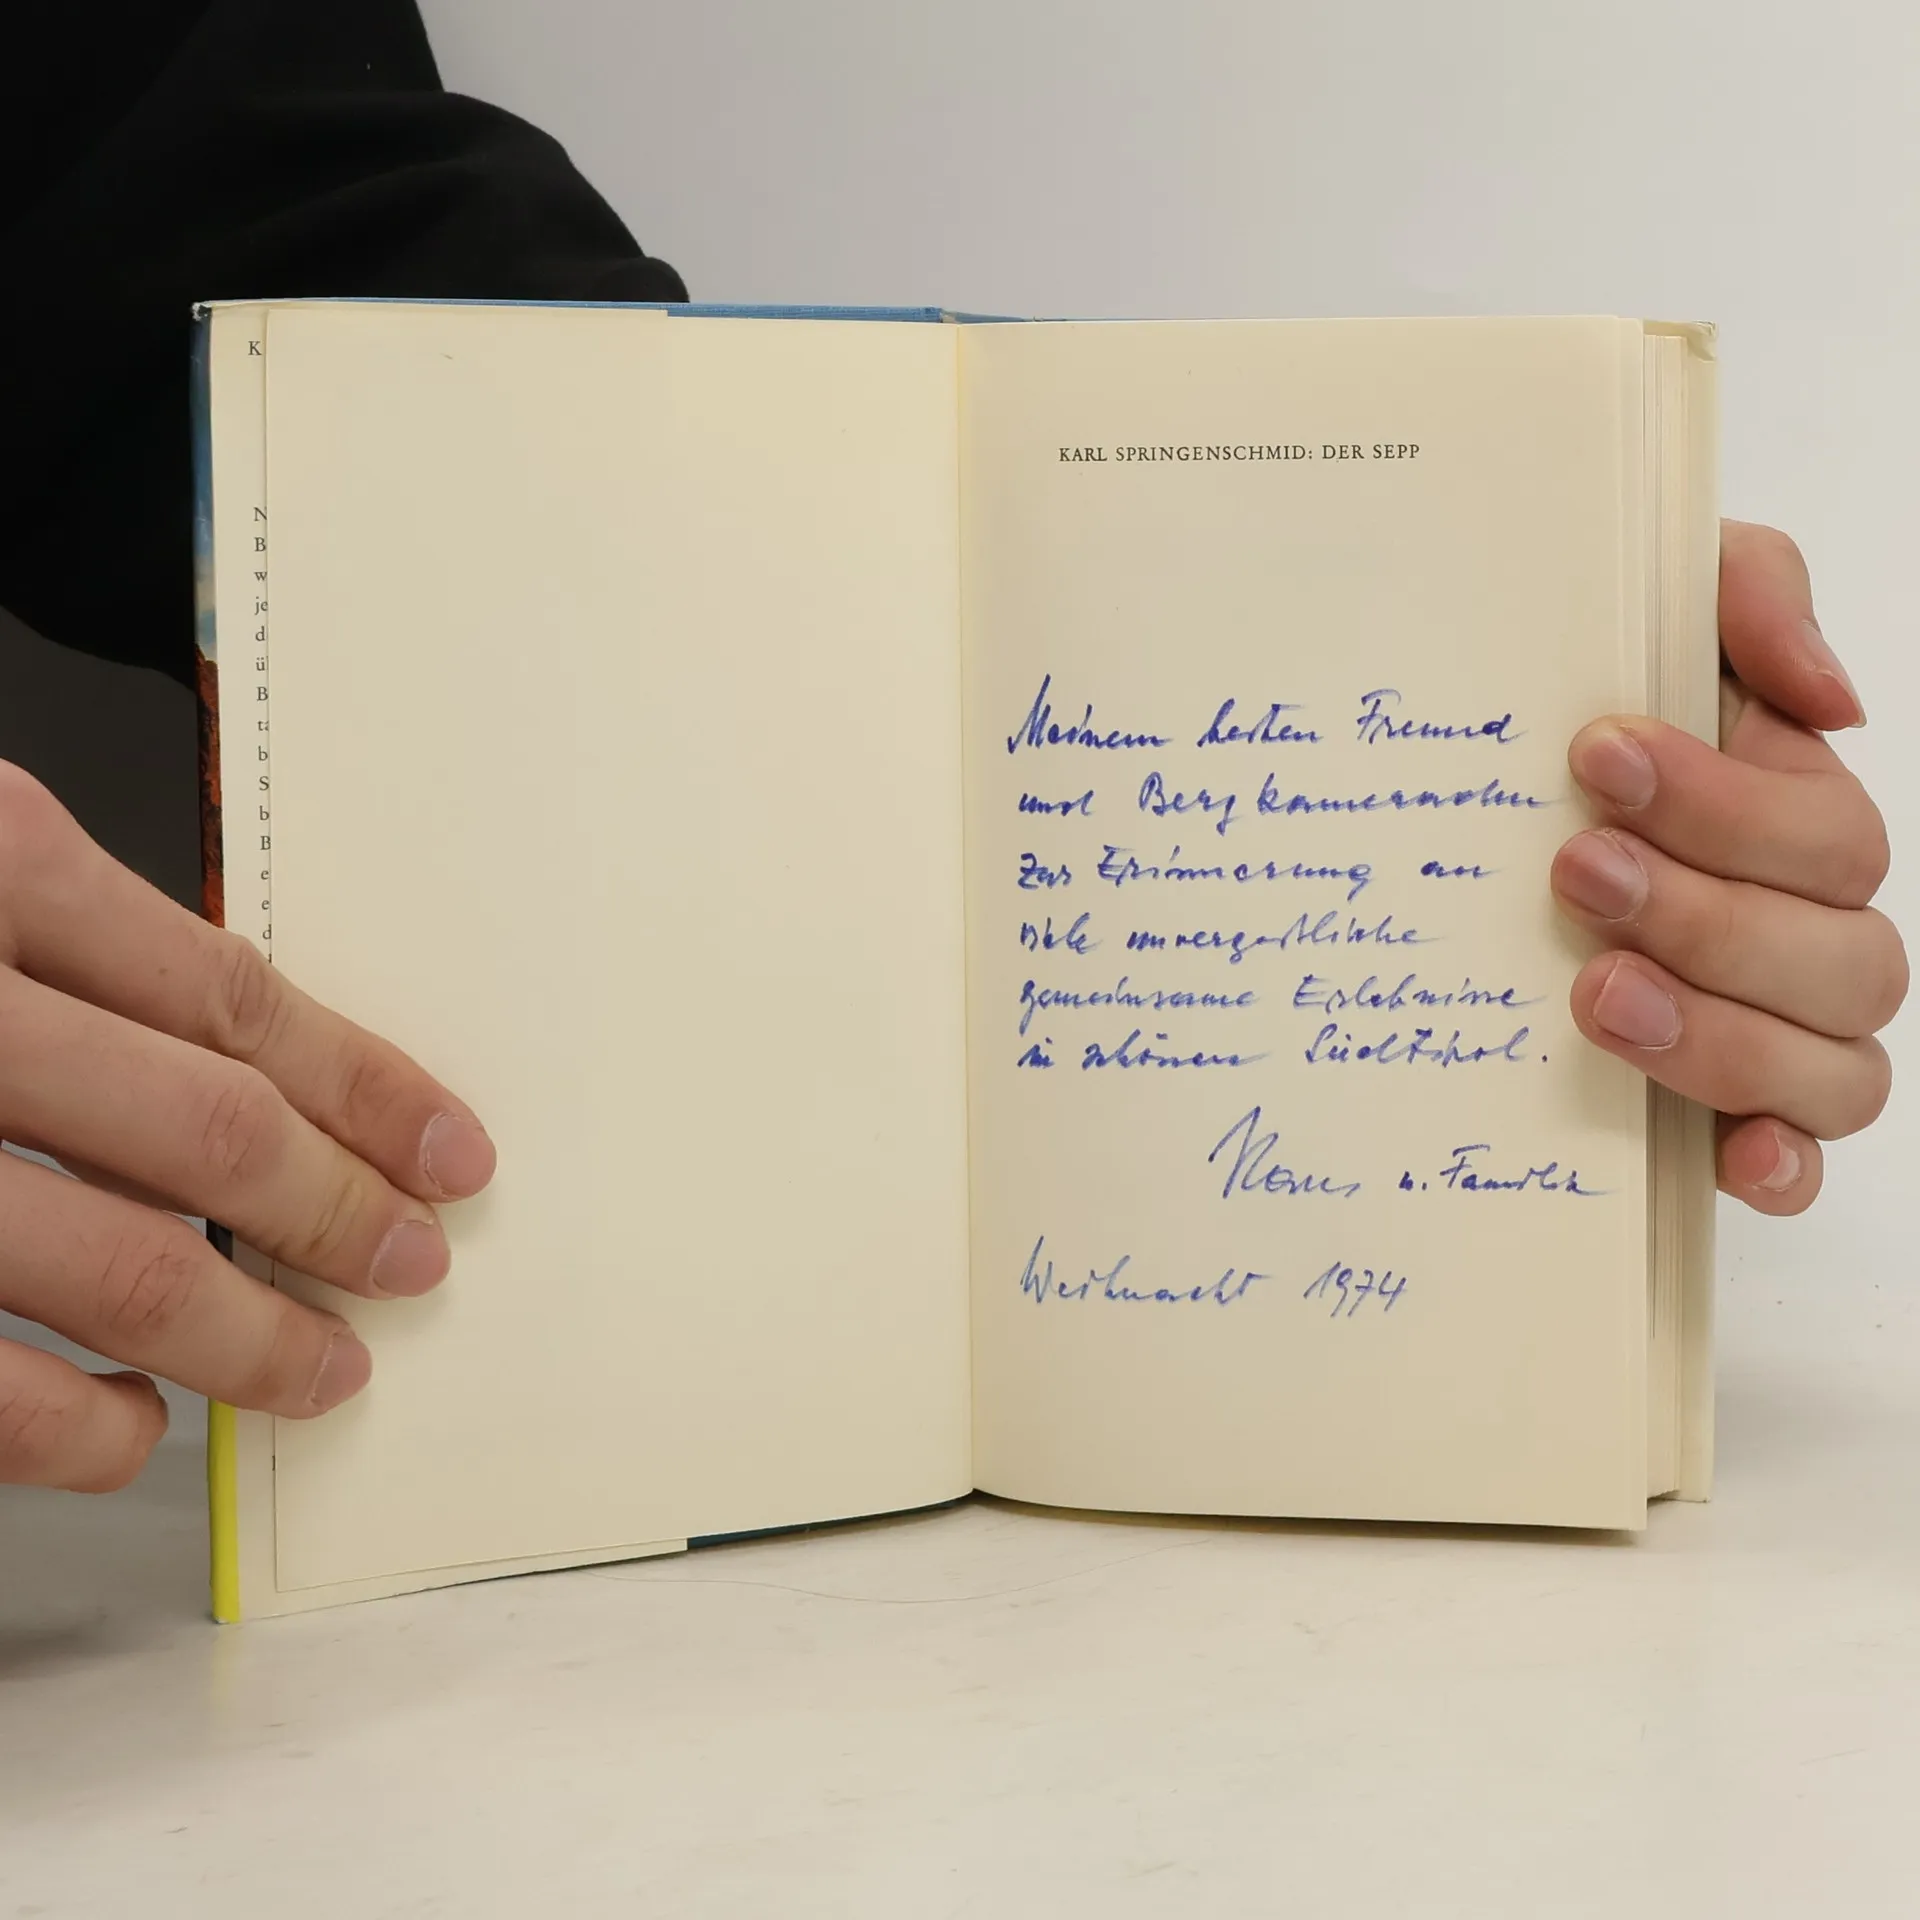 K
N
B
w
je
d
ü
B
ta
b
S
b
B
e
e
d
KARL SPRINGENSCHMID: DER SEPP
Meinem besten Freund
und Bergkameraden
Zur Erinnerung an
viele unvergeßliche
gemeinsame Erlebnisse
in schönen Südtirol.
u. Familie
Weihnacht 1974